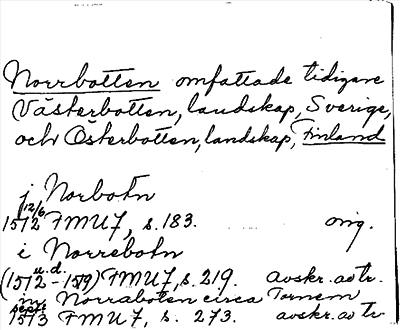 Norrbotten omfattade tidigare
Västerbotten, landskap, Sverige,
och Österbotten, landskap, Finland
j Norbotn
12/6
1512 FMU 7, s. 183. orig.
i Norrebotn
u. d.
(1512-1519) FMU 7, s. 219. avskr. av tr.
in Norraboten circa Tornem
sept.
1513 FMU 7, s. 273. avskr. av tr